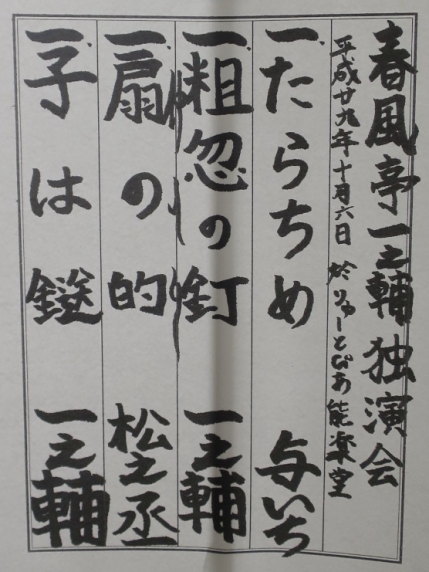 春風亭一之輔独演会
平成廿九年十月六日 於りゅーとぴあ能楽堂
一、たらちめ 与いち
一、粗忽の釘 一之輔
一、扇の的 松之丞
一、子は鎹 一之輔